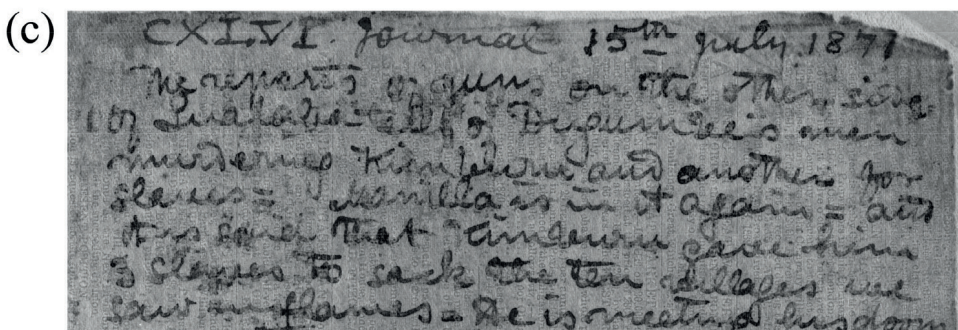 (c)
CXLVI. Journal 15th July 1871
The reports of guns on the other side
of Lualaba tell of Dugumbe's men
murdering Kimburu and another for
slaves = Manilla is in it again = and
it is said that Kimburu gave him
3 slaves to sack the ten villages we
saw in flames = He is meeting his doom